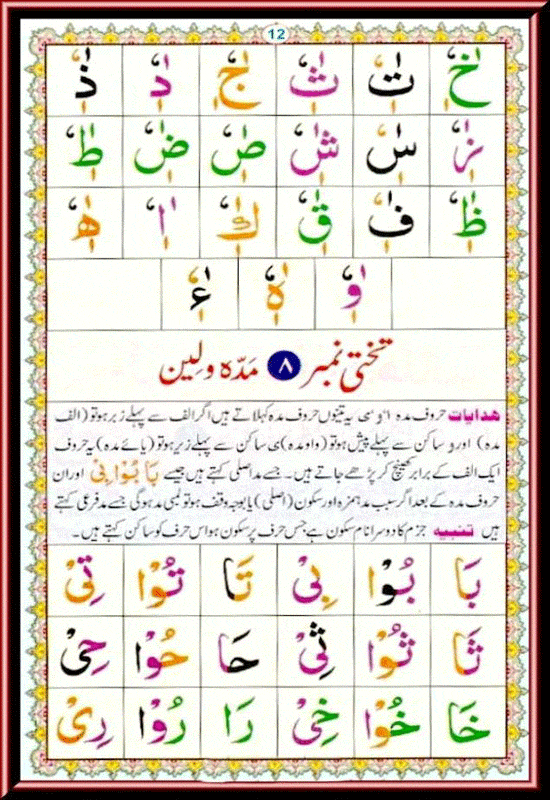 12
خٰٖٗ تٰٖٗ ثٰٖٗ جٰٖٗ دٰٖٗ ذٰٖٗ
زٰٖٗ سٰٖٗ شٰٖٗ صٰٖٗ ضٰٖٗ طٰٖٗ
ظٰٖٗ فٰٖٗ قٰٖٗ كٰٖٗ اٰٖٗ ھٰٖٗ
وٰٖٗ هٰٖٗ ءٰٖٗ
تختی نمبر ۸ مَدّہ ولِین
ھدایات حروف مدہ ا و ی یہ تینوں حروف مدہ کہلاتے ہیں اگر الف سے پہلے زبر ہو تو (الف
مدہ) اور و ساکن سے پہلے پیش ہو تو (واو مدہ) ی ساکن سے پہلے زیر ہو تو (یائے مدہ) یہ حروف
ایک الف کے برابر کھینچ کر پڑھے جاتے ہیں۔ جسے مد اصلی کہتے ہیں جیسے بَا بُوْا بِیْ اور ان
حروف مدہ کے بعد اگر سبب مد ہمزہ اور سکون (اصلی) یا بوجہ وقف ہو تو لمبی مد ہوگی جسے مد فرعی کہتے
ہیں تنبیه جزم کا دوسرا نام سکون ہے جس حرف پر سکون ہو اس حرف کو ساکن کہتے ہیں۔
بَا بُوْا بِىْ تَا تُوْا تِىْ
ثَا ثُوْا ثِىْ حَا حُوْا حِىْ
خَا خُوْا خِىْ رَا رُوْا رِىْ